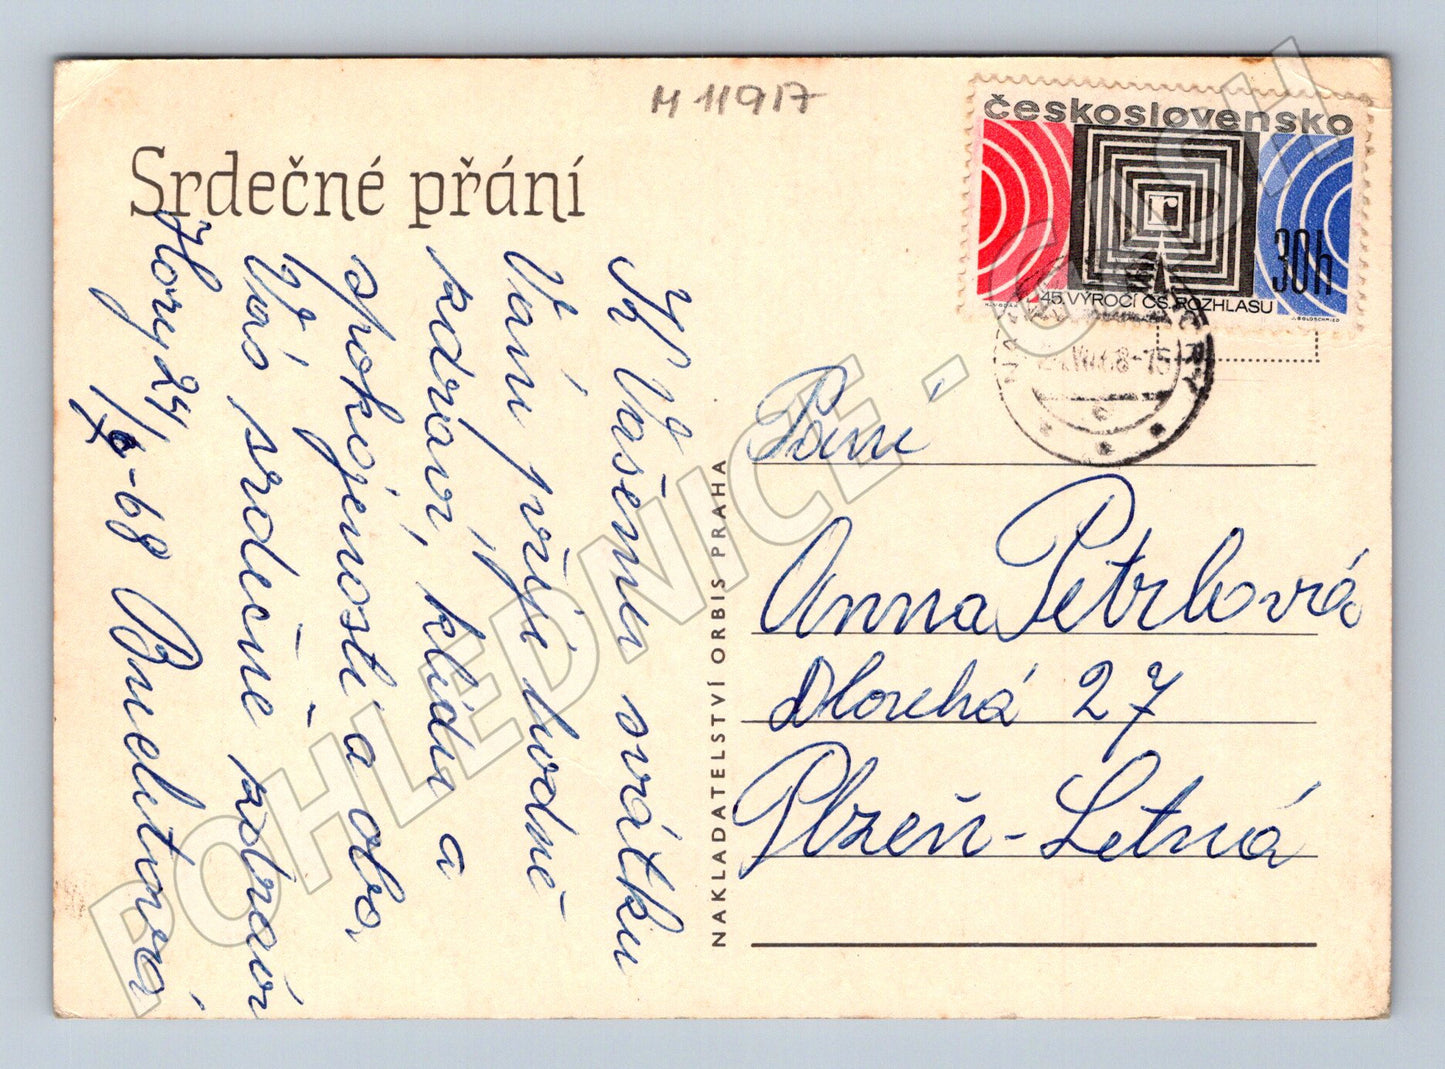 M 11917
Srdečné přání
K Vašemu svátku
Vám přeje hodně
zdraví, klidu a
spokojenosti a oba
Vás srdečně zdraví
Hory 24/ -68
československo
30h
45. VÝROČÍ ČS. ROZHLASU
J. GOLDSCHMIED
68-15
NAKLADATELSTVÍ ORBIS PRAHA
Paní
Anna Petrbová
Dlouhá 27
Plzeň-Letná
POHLEDNICE - SBÍREJ